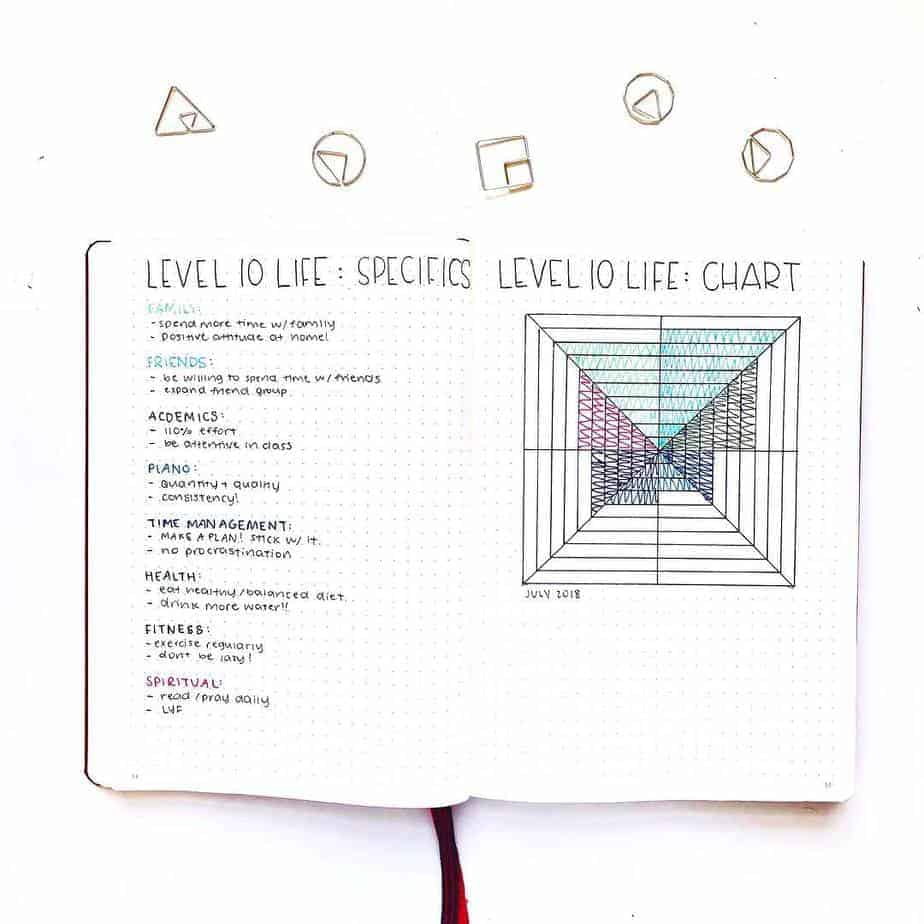 LEVEL 10 LIFE : SPECIFICS
FAMILY:
- spend more time w/family
- positive attitude at home!
FRIENDS:
- be willing to spend time w/ friends
- expand friend group
ACDEMICS:
- 110% effort
- be attentive in class
PIANO:
- quantity + quality
- consistency!
TIME MANAGEMENT:
- MAKE A PLAN! STICK W/ IT.
- no procrastination
HEALTH:
- eat healthy/balanced diet.
- drink more water!!
FITNESS:
- exercise regularly
- don't be lazy!
SPIRITUAL:
- read/pray daily
- LYF
LEVEL 10 LIFE: CHART
JULY 2018